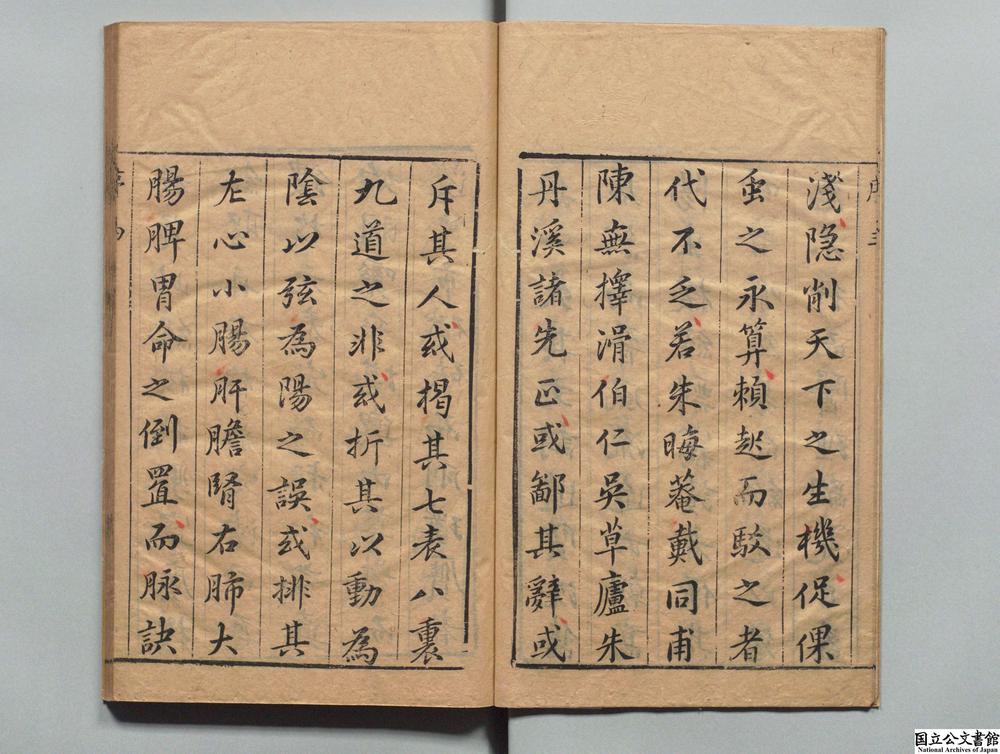 淺隐削天下之生機促倮
虫之永算頼起而駁之者
代不乏若朱晦菴戴同甫
陳無擇滑伯仁吳草廬朱
丹溪諸先正或鄙其辭或
斥其人或榻其七表八裏
九道之非或折其以動為
陰以弦為陽之誤或排其
左心小腸肝膽腎右肺大
腸脾胃命之倒置而脉訣
国立公文書館
National Archives of Japan